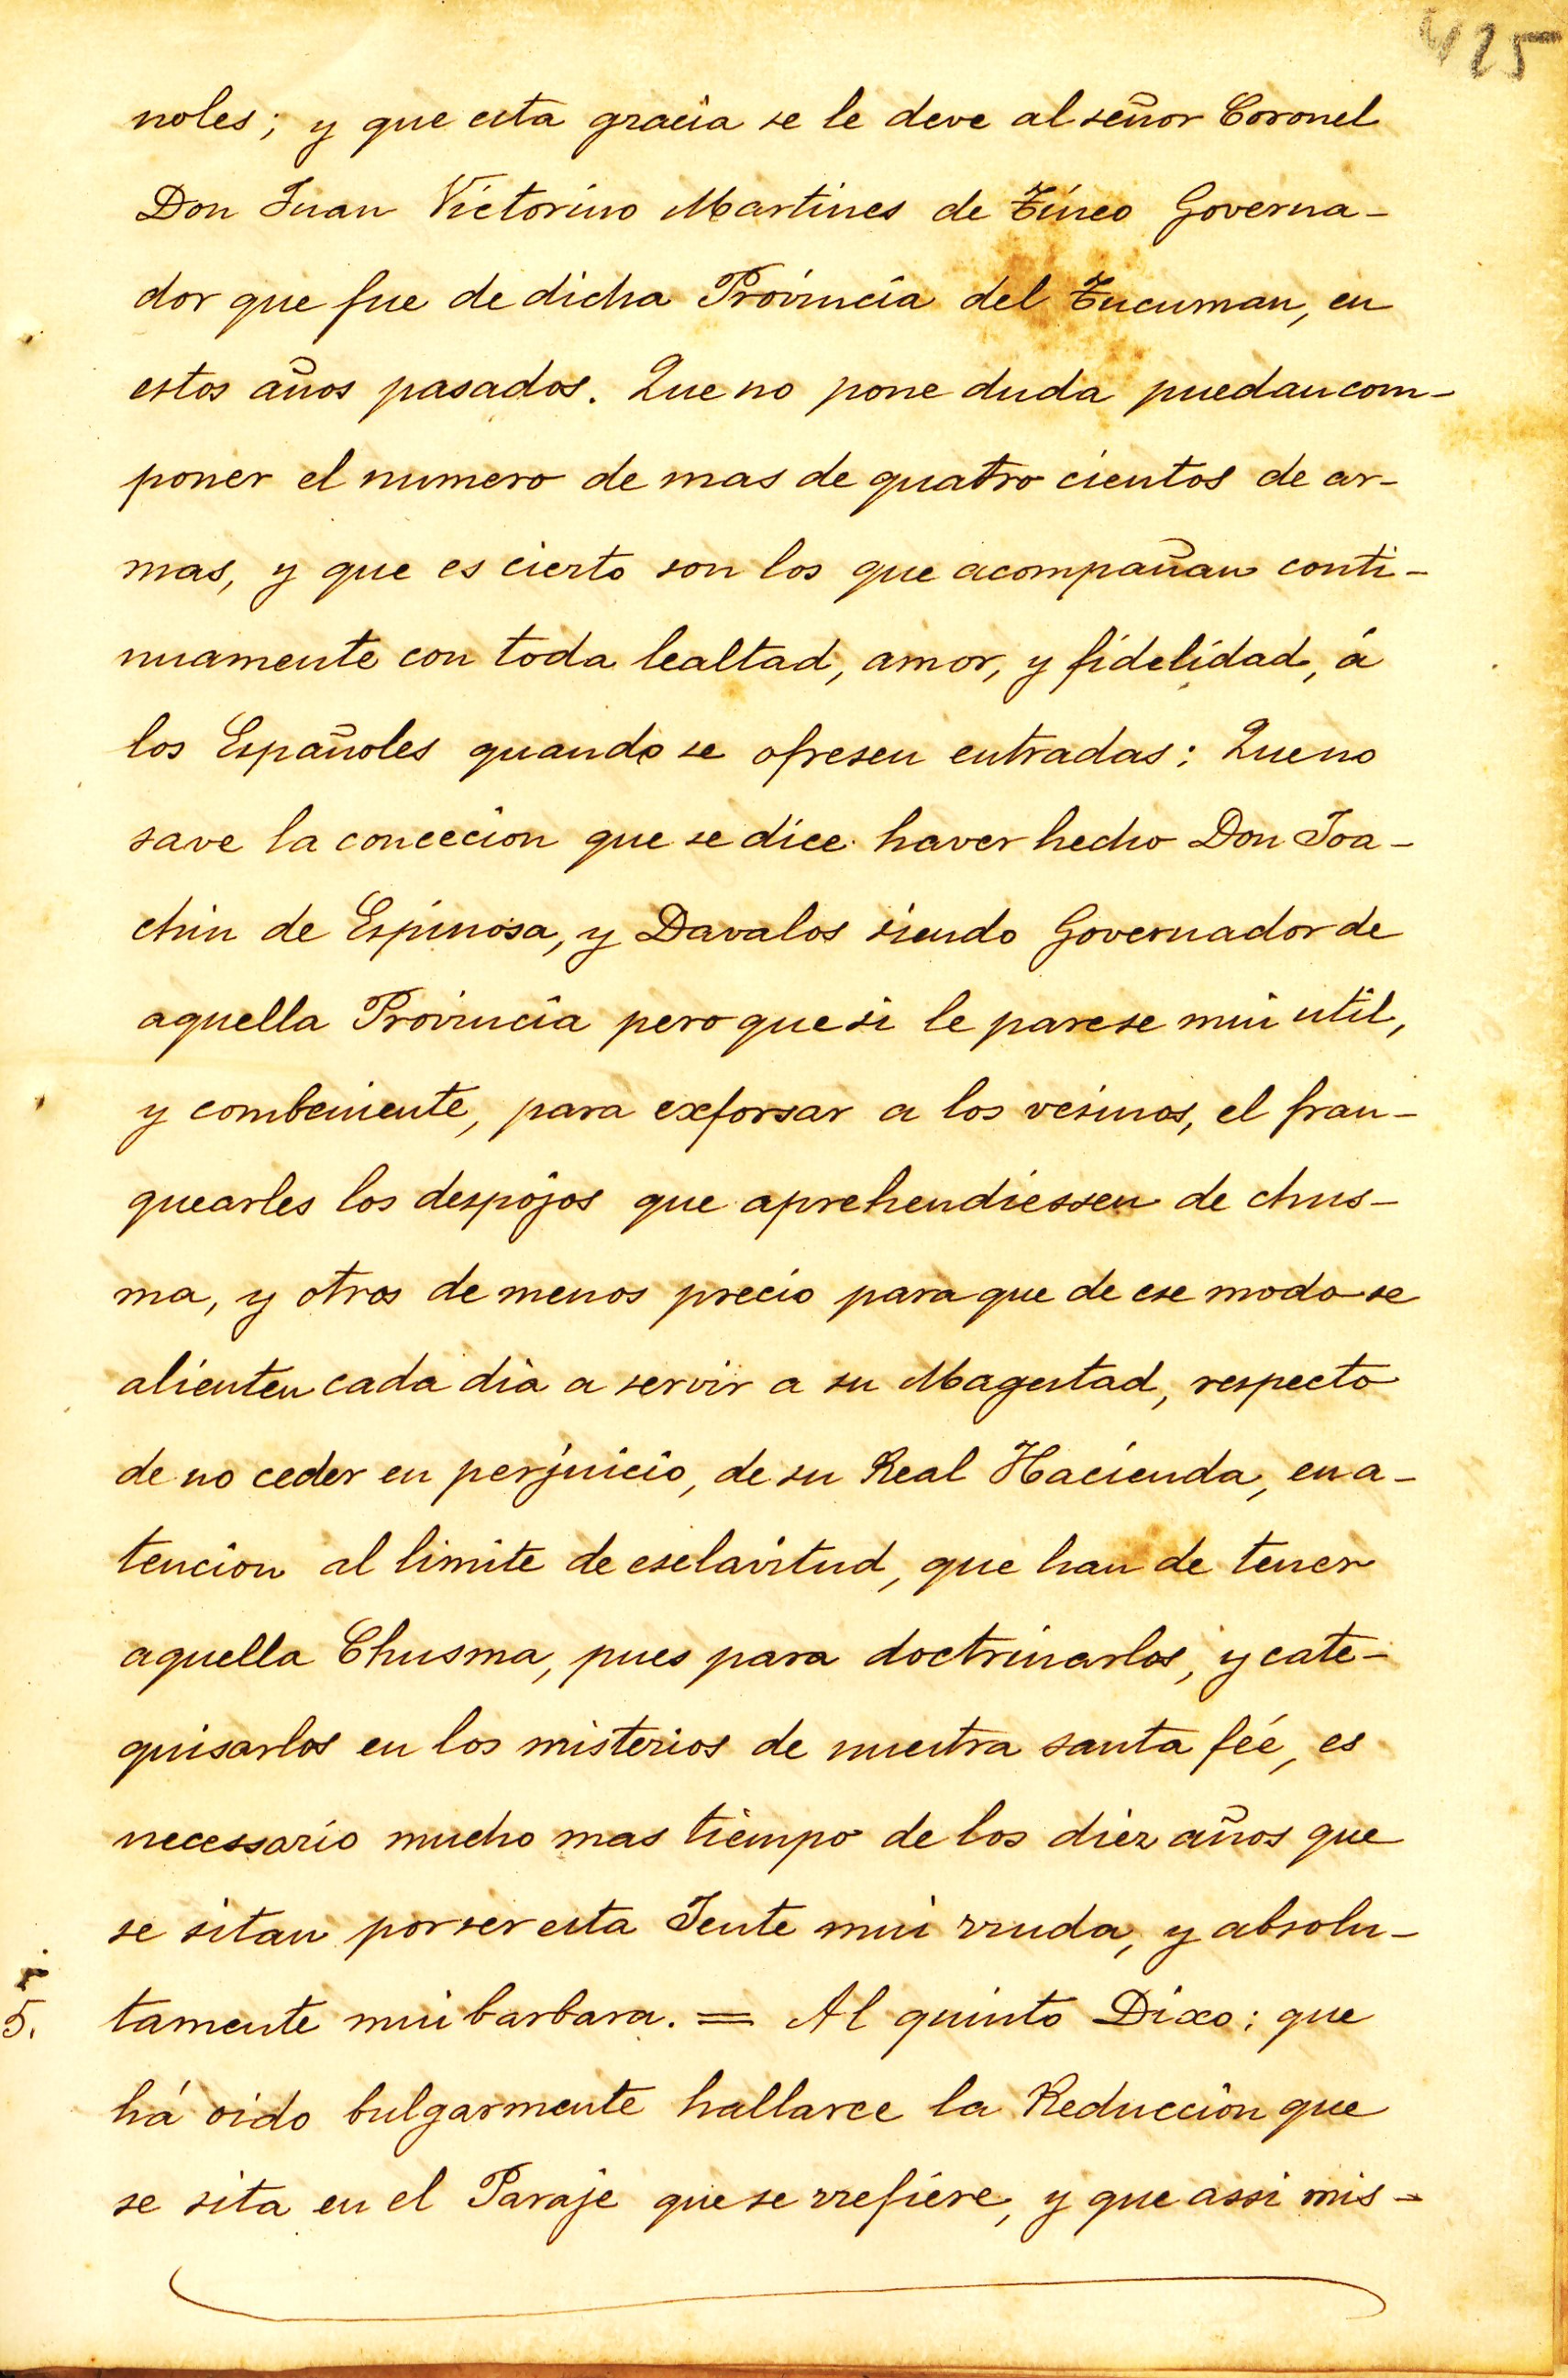 425
noles; y que esta gracia se le deve al señor Coronel
Don Juan Victorino Martines de Tineo Governa-
dor que fue de dicha Provincia del Tucuman, en
estos años pasados. Que no pone duda puedan com-
poner el numero de mas de quatro cientos de ar-
mas, y que es cierto son los que acompañan conti-
nuamente con toda lealtad, amor, y fidelidad, á
los Españoles quando se ofresen entradas: Que no
save la concecion que se dice haver hecho Don Joa-
chin de Espinosa, y Davalos siendo Governador de
aquella Provincia pero que si le parese mui util,
y combeniente, para exforsar a los vesinos, el fran-
quearles los despojos que aprehendiessen de chus-
ma, y otros de menos precio para que de ese modo se
alienten cada dia a servir a su Magestad, respecto
de no ceder en perjuicio, de su Real Hacienda, en a-
tencion al limite de esclavitud, que han de tener
aquella Chusma, pues para doctrinarlos, y cate-
quisarlos en los misterios de nuestra santa fée, es
necessario mucho mas tiempo de los diez años que
se sitan por ser esta Jente mui rruda, y absolu-
5. tamente mui barbara. = Al quinto Dixo: que
há oido bulgarmente hallarce la Reduccion que
se sita en el Paraje que se rrefiere, y que assi mis-